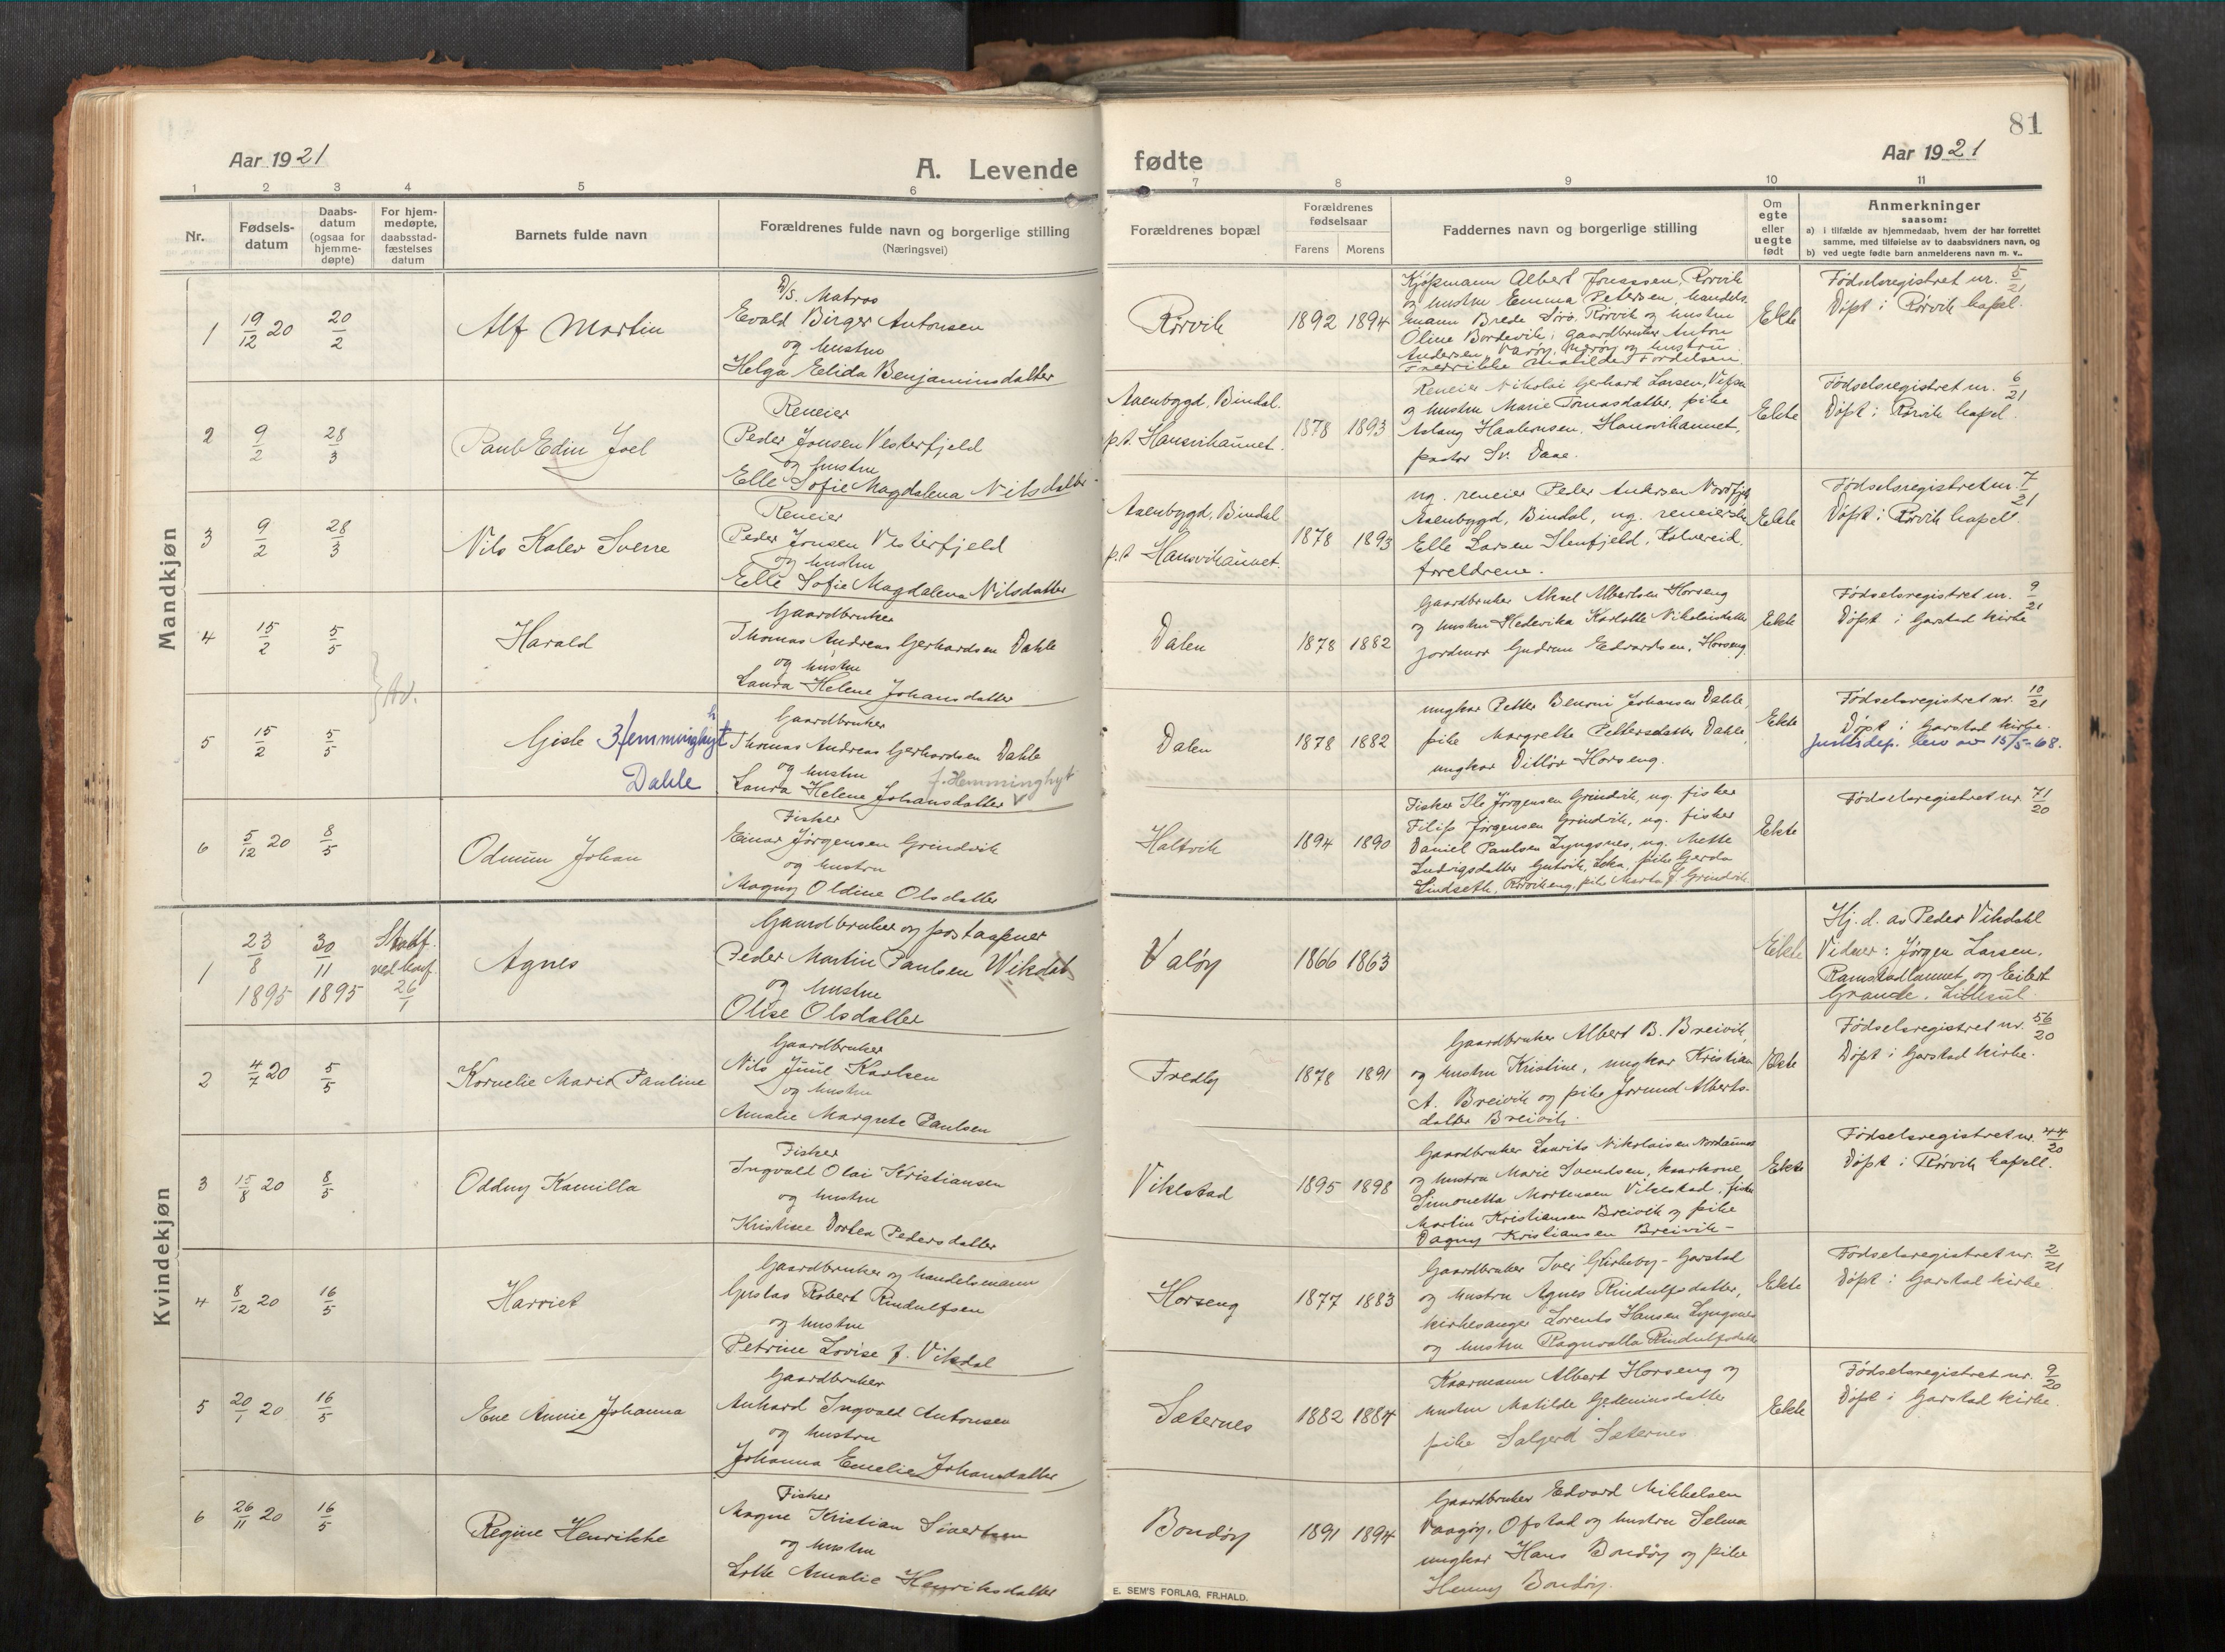 81
Aar 1921
A. Levende
fødte
Aar 1921
1 2 3 4 5 6 7 8 9 10 11
Nr.
Fødsels-
datum
Daabs-
datum
(ogsaa for
hjemme-
døpte)
For hjem-
medøpte,
daabsstad-
fæstelses
datum
Barnets fulde navn
Forældrenes fulde navn og borgerlige stilling
(Næringsvei)
Forældrenes bopæl
Forældrenes
fødselsaar
Farens Morens
Faddernes navn og borgerlige stilling
Om
egte
eller
uegte
født
Anmerkninger
saasom:
a) i tilfælde av hjemmedaab, hvem der har forrettet
samme, med tilføielse av to daabsvidners navn, og
b) ved uegte fødte barn anmelderens navn m. v..
Mandkjøn
1 19/12 20 20/2
Alf Martin
D/S. Matros
Evald Birger Antonsen
og hustru
Helga Elida Benjaminsdatter
Rørvik
1892 1894
Kjøpmann Albert Jonassen, Rørvik
og hustru Emma Petersen, handels
mann Brede Sørø, Rørvik og hustru
Oline Bordevik, gaardbruker Anton
Andersen, Varøy, Nærøy og hustru
Fredrikke Matilde Tordelsen
Ekte
Fødselsregistret nr. 5/21
Døpt i Rørvik kapel.
2 9/2 28/3
Paul Edin Joel
Reneier
Peder Jonsen Vesterfjeld
og hustru
Elle Sofie Magdalena Nilsdatter
Aaenbygd, Bindal.
p.t. Hansvikaunet.
1878 1893
Reneier Nikolai Gerhard Larsen, Vefsn
og hustru Marie Tomasdatter, pike
Aslaug Haakonsen, Hansvikaunet,
pastor Sv. Daae.
Ekte
Fødselsregistret nr. 6/21
Døpt i Rørvik kapel.
3 9/2 28/3
Nils Kalev Sverre
Reneier
Peder Jonsen Vesterfjeld
og hustru
Elle Sofie Magdalena Nilsdatter
Aaenbygd, Bindal
p.t. Hansvikaunet.
1878 1893
ug. reneier Peder Andersen Nordfjeld
Aaenbygd, Bindal, ug. reneierske
Elle Larsen Stenfjeld, Kolvereid.
foreldrene.
Ekte
Fødselsregistret nr. 7/21
Døpt i Rørvik kapell.
4 15/2 5/5
Harald
Gaardbruker
Thomas Andreas Gerhardsen Dahle
og hustru
Laura Helene Johansdatter
Dalen
1878 1882
Gaardbruker Aksel Albertsen Horseng
og hustru Hedevika Karlotte Nikolaisdatter
jordmor Gudrun Edvardsen, Horseng.
Ekte
Fødselsregistret nr. 9/21
Døpt i Garstad kirke
5 15/2 5/5
Gisle Hemminghyt
Dahle
Gaardbruker
Thomas Andreas Gerhardsen Dahle
og hustru f. Hemminghyt
Laura Helene Johansdatter
Dalen
1878 1882
ungkar Petter Benoni Johansen Dahle,
pike Margrethe Pettersdatter Dahle,
ungkar Ditlør Horseng.
Ekte
Fødselsregistret nr. 10/21
Døpt i Garstad kirke.
Justisdep. brev av 15/5-68.
6 5/12 20 8/5
Odmun Johan
Fisker
Einar Jørgensen Grindvik
og hustru
Magny Oldine Olsdatter
Holtvik
1894 1890
Fisker Ile Jørgensen Grindvik, ug. fisker
Filip Jørgensen Grindvik, ug. fisker
Daniel Paulsen Lyngsnes, ug. Mette
Ludvigsdatter Gutvik, Leka, pike Gerda
Lindseth, Rørvikeng, pike Marta J. Grindvik
Ekte
Fødselsregistret nr. 71/20
Kvindekjøn
1 23/8 1895 30/11 1895 Stadf. ved konf. 26/1
Agnes
Gaardbruker og postaapner
Peder Martin Paulsen Wikdal
og hustru
Olise Olsdatter
Valøy
1866 1863
Ekte
Hj. d. av Peder Vikdahl
Vidner: Jørgen Larsen,
Ramstadlannet og Eilert
Grande.
2 4/7 20 5/5
Kornelie Marie Pauline
Gaardbruker
Nils Juul Karlsen
og hustru
Amalie Margrete Paulsen
Fredly
1878 1891
Gaardbruker Albert B. Breivik,
og hustru Kristine, ungkar Kristian
A. Breivik og pike Jorund Alberts-
datter Breivik.
Ekte
Fødselsregistret nr. 56/20
Døpt i Garstad kirke.
3 15/8 20 8/5
Oddny Kamilla
Fisker
Ingvald Olai Kristiansen
og hustru
Kristine Dortea Pedersdatter
Vikestad
1895 1898
Gaardbruker Laurits Nikolaisen Nordaunet
og hustru Marie Svendsen, kaarkone
Simonetta Mortensen Vikestad, fisker
Martin Kristiansen Breivik og pike
Dagny Kristiansen Breivik-
Ekte
Fødselsregistret nr. 44/20
Døpt i Rørvik kapell.
4 8/12 20 16/5
Harriet
Gaardbruker og handelsmann
Gustav Robert Rindulfsen
og hustru
Petrine Lovise f. Vikdal
Horseng
1877 1883
Gaardbruker Iver Kirkeby-Garstad
og hustru Agnes Rindulfsdatter,
kirkesanger Lorents Hansen Lyngsnes
og hustru Ragnvalla Rindulfsdatter
Ekte
Fødselsregistret nr. 2/21
Døpt i Garstad kirke.
5 20/1 20 16/5
Ene Annie Johanna
Gaardbruker
Anhard Ingvald Antonsen
og hustru
Johanna Emelie Johansdatter
Sæternes
1882 1884
Kaarmann Albert Horseng og
hustru Matilde Gedeminsdatter
pike Salgerd Sæternes
Ekte
Fødselsregistret nr. 9/20
Døpt i Garstad kirke.
6 26/11 20 16/5
Regine Henrikke
Fisker
Magne Kristian Sivertsen
og hustru
Lotte Amalie Henriksdatter
Bondøy
1891 1894
Gaardbruker Edvard Mikkelsen
Vaagøy, Ofstad og hustru Selma
ungkar Hans Bondøy og pike
Henny Bondøy.
E. SEM'S FORLAG, FR.HALD.